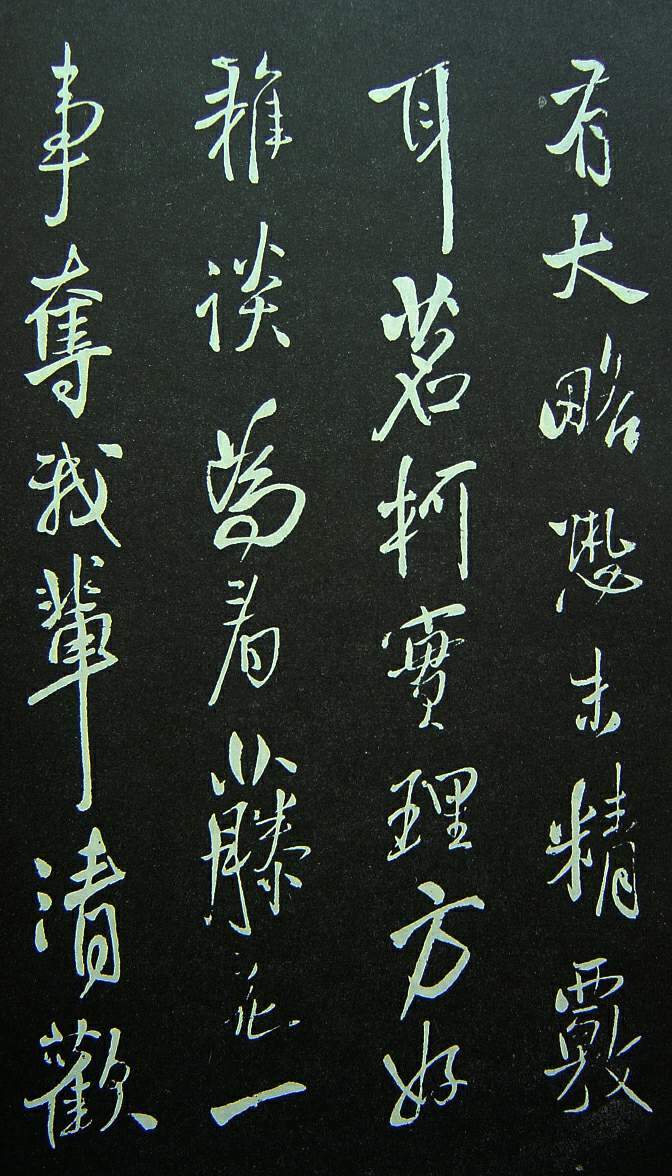 有大略恐未精覈
耳茗柯實理方好
雜談為看藤花一
事奪我輩清歡